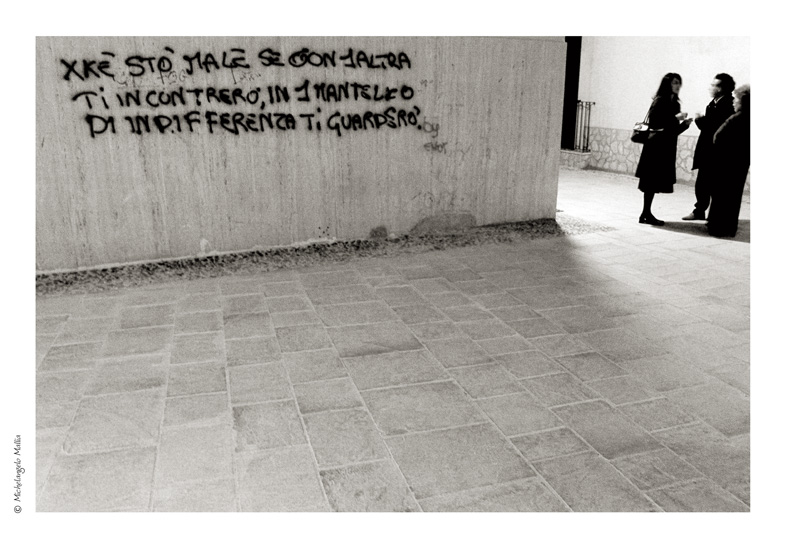 XKÈ STÒ MALE SE CON 1ALTRA
TI INCONTRERÒ, IN 1 MANTELLO
DI INDIFFERENZA TI GUARDERÒ.
by
© Michelangelo Mallia